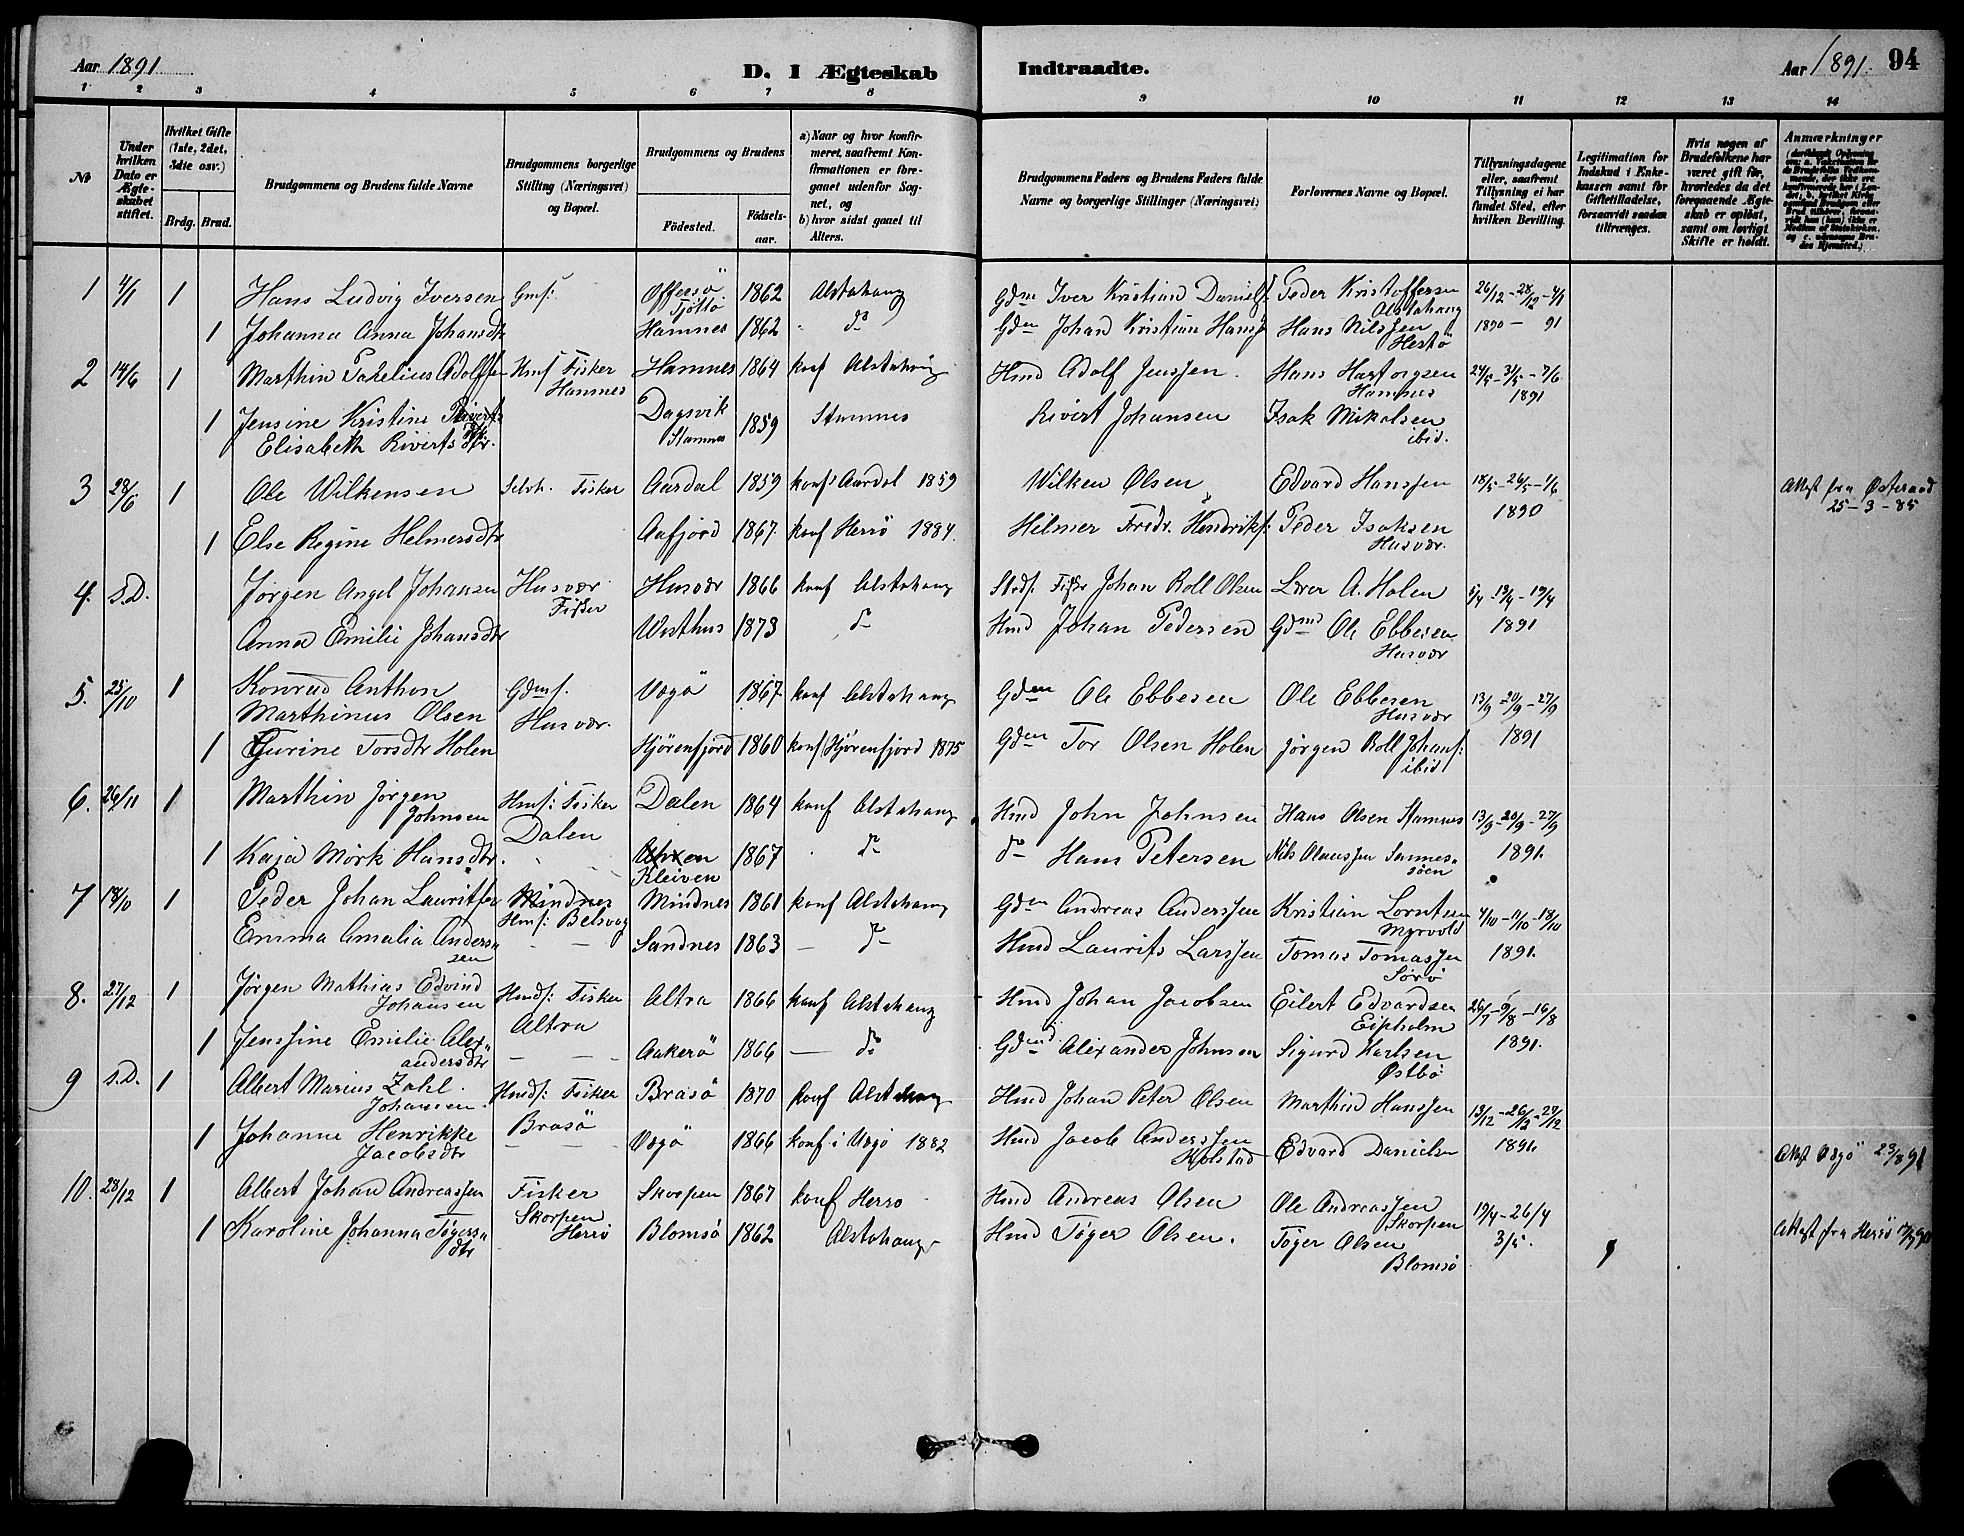 Aar 1891
D. I Ægteskab
Indtraadte.
Aar 1891. 94
1 2 3 4 5 6 7 8 9 10 11 12 13 14
No
Under hvilken Dato er Ægteskabet stiftet.
Hvilket Gifte (1ste, 2det, 3die osv.)
Brdg. Brud.
Brudgommens og Brudens fulde Navne
Brudgommens borgerlige Stilling (Næringsvei) og Bopæl.
Brudgommens og Brudens
Födested. Födselsaar.
a) Naar og hvor konfirmeret, saafremt Konfirmationen er foregaaet udenfor Sognet, og
b) hvor sidst gaaet til Alters.
Brudgommens Faders og Brudens Faders fulde Navne og borgerlige Stillinger (Næringsvei)
Forlovernes Navne og Bopæl.
Tillysningsdagene eller, saafremt Tillysning ei har fundet Sted, efter hvilken Bevilling.
Legitimation for Indskud i Enkekassen samt for Giftetilladelse, forsaavidt saadan tiltrænges.
Hvis nogen af Brudefolkene har været gift för, hvorledes da det foregaaende Ægteskab er oplöst, samt om lovligt Skifte er holdt.
Anmærkninger
1 4/1 1 Hans Ludvig Iversen Gmf: Offersö Tjöttö 1862 Alstahaug Gdmd Iver Kristian Danielf: Peder Kristoffersen Alstahaug 26/12 - 28/12 - 4/1
1 Johanna Anna Johansdtr Hamnes 1862 do Gdmd Johan Kristian Hansf Hans Nilssen Hestö 1890 - 91
2 14/6 1 Marthin Adolfsen Hmf Fisker Hamnes Hamnes 1864 konf Alstahaug Hmd Adolf Jenssen. Hans Hartvigsen Hamnes 24/5 - 31/5 - 7/6
1 Jensine Kristine Elisabeth Rivertsdtr. Dagsvik Stamnes 1859 Stamnes Rivert Johansen Isak Mikalsen ibid. 1891
3 28/6 1 Ole Wilkensen Selvh. Fisker Aardal 1859 konf Aardal 1859 Wilken Olsen Edvard Hanssen 18/5 - 26/5 - 1/6 Attest fra 25-3-85
1 Else Regine Helmersdtr Aafjord 1867. konf Herö 1884. Hilmer Fredr. Hendrikf: Peder Isaksen Husvær. 1890
4. S.D. Jørgen Angel Johansen Husvær Fisker Husvær 1866 konf Alstahaug Fisker Johan Roll Olsen Lærer A. Holen 5/4 - 12/4 - 19/4
Anna Emilie Johansdtr 1873 do Hmd Johan Pedersen Gdmd Ole Ebbesen Husvær 1891
5. 25/10 1 Konrad Anthon Marthinus Olsen Gdmf. Husvær. Vægö 1867 konf Alstahaug Gdmd Ole Ebbesen Ole Ebbesen Husvær 13/9 - 20/9 - 27/9
1 Gurine Torsdtr Holen Hjörenfjord 1860 konf Hjörenfjord 1875 Gdmd Tor Olsen Holen Jørgen Roll Johanf: ibid 1891
6. 26/11 1 Marthin Jørgen Johnsen Hmf: Fisker Dalen Dalen 1864 konf Alstahaug Hmd John Johnsen Hans Olsen Stamnes 13/9 - 20/9 - 27/9
1 Kaja Mörk Hansdtr. Kleiven 1867 do do Hans Petersen Nils Olaussen Sannessöen 1891.
7 18/10 1 Peder Johan Lauritsen Mindnes Hmf: Belsvåg Mindnes 1861 konf Alstahaug Gdmd Andreas Anderssen Kristian Lorntsen Myrvold 4/10 - 11/10 - 18/10
Emma Amalia Anderssen Sandnes 1863 do Hmd Laurits Larssen Tomas Tomassen Sörö 1891.
8. 27/12 1 Jørgen Mathias Edvind Johansen Hmdf: Fisker Altra Altra 1866 konf Alstahaug Hmd Johan Jacobsen Eilert Edvardsen Eipholm 26/7 - 9/8 - 16/8
1 Jenssine Emilie Alexandersdtr Aakerö 1866 do Gdmd Alexander Johnsen Sigurd Karlsen Østbö 1891.
9 S.D. 1 Albert Marius Zahl Johansen Hmdf: Fisker Brasö Brasö 1870 konf Alstahaug Hmd Johan Peter Olsen Marthin Hanssen 13/12 - 26/12 - 27/12
1 Johanne Henrikke Jacobsdtr Vægö 1866 konf i Vægö 1882 Hmd Jacob Anderssen Kolstad Edvard Danielsen 1891. Attest Vægö 23/8 91
10. 28/12 1 Albert Johan Andreassen Fisker Skorpen Herö Skorpen 1867 konf Herrö Hmd Andreas Olsen Ole Andreassen Skorpen 19/4 - 26/4
1 Karoline Johanna Tøgersdtr Blomsö 1862 Alstahaug Hmd Tøger Olsen. Tøger Olsen Blomsö 3/5. Attest fra Herö